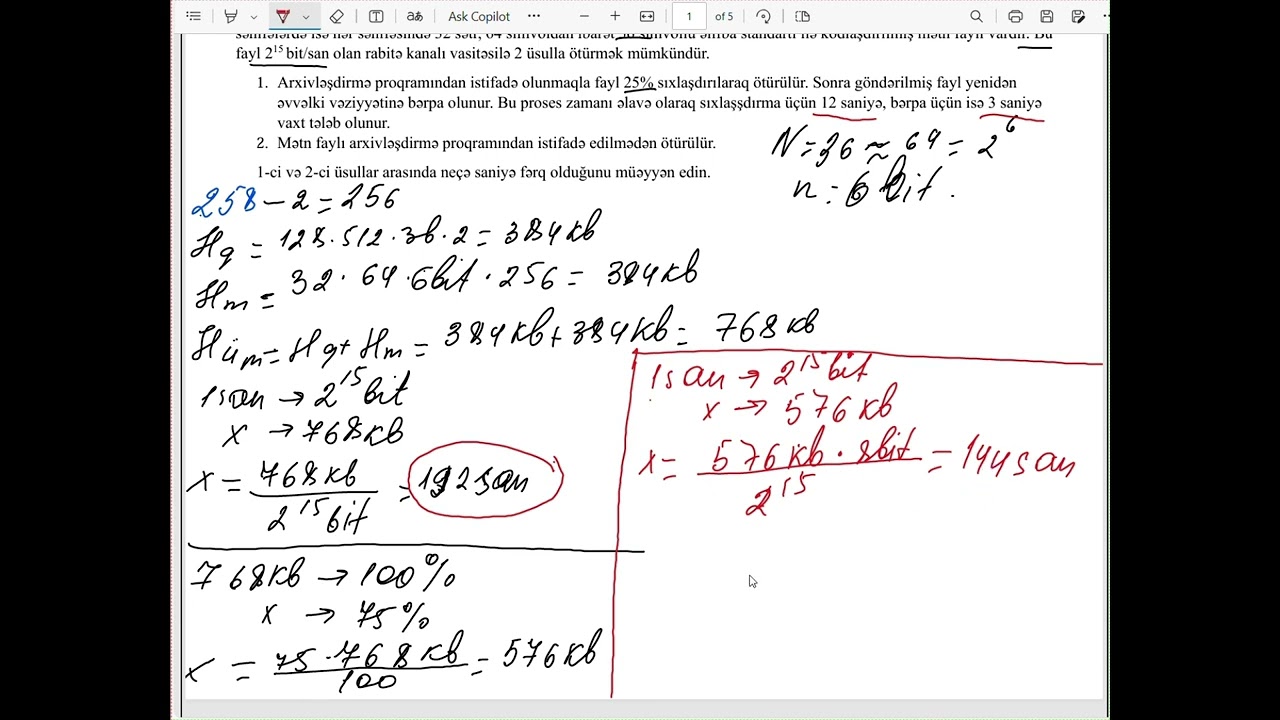 Ask Copilot
1 of 5
fayl 2^15 bit/san olan rabitə kanalı vasitəsilə 2 üsulla ötürmək mümkündür.
1. Arxivləşdirmə proqramından istifadə olunmaqla fayl 25% sıxlaşdırılaraq ötürülür. Sonra göndərilmiş fayl yenidən
əvvəlki vəziyyətinə bərpa olunur. Bu proses zamanı əlavə olaraq sıxlaşşdırma üçün 12 saniyə, bərpa üçün isə 3 saniyə
vaxt tələb olunur.
2. Mətn faylı arxivləşdirmə proqramından istifadə edilmədən ötürülür.
1-ci və 2-ci üsullar arasında neçə saniyə fərq olduğunu müəyyən edin.
N=36≈64=2^6
n=6bit.
258-2=256
Hq=128·512·3b·2=384kb
Hm=32·64·6bit·256=384kb
Hüm=Hq+Hm=384kb+384kb=768kb
1san→2^15bit
x→768kb
x=768kb/2^15bit=192san
768kb→100%
x→75%
x=75·768kb/100=576kb
1san→2^15bit
x→576kb
x=576kb·8bit/2^15=144san